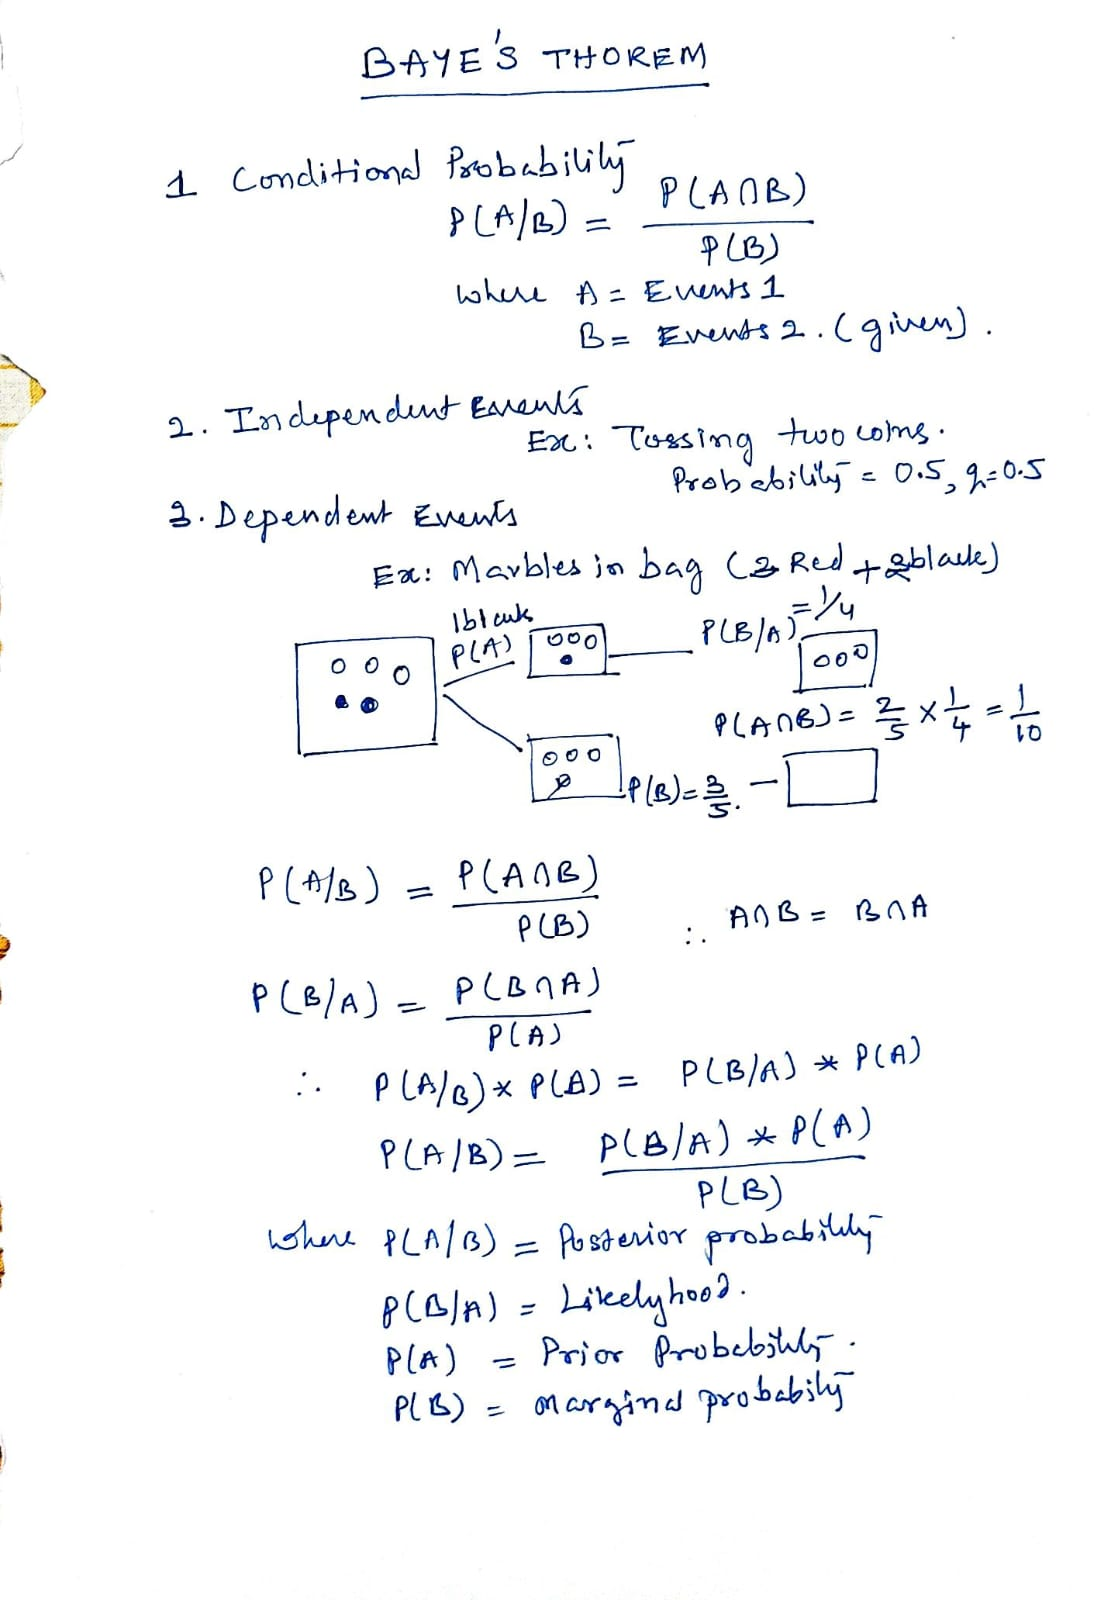 BAYE'S THOREM
1 Conditional Probability
P(A/B) = P(A∩B)
P(B)
where A = Events 1
B = Events 2. (given).
2. Independent Events
Ex: Tossing two coins.
Probability = 0.5, q=0.5
3. Dependent Events
Ex: Marbles in bag ( Red + black)
1black
P(A)
P(B/A) = 1/4
P(A∩B) = 2/5 × 1/4 = 1/10
P(B) = 3/5. -
P(A/B) = P(A∩B)
P(B)
∴ A∩B = B∩A
P(B/A) = P(B∩A)
P(A)
∴ P(A/B) * P(B) = P(B/A) * P(A)
P(A/B) = P(B/A) * P(A)
P(B)
where P(A/B) = Posterior probability
P(B/A) = Likelyhood.
P(A) = Prior Probability.
P(B) = marginal probability